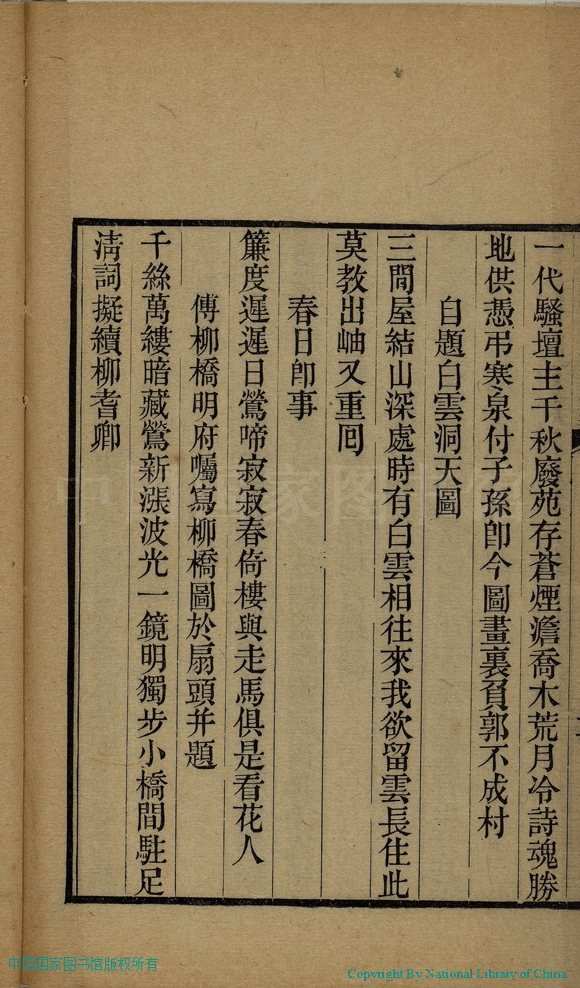 一代騷壇主千秋廢苑存蒼煙澹喬木荒月冷詩魂勝
地供憑弔寒泉付子孫卽今圖畫裏負郭不成村
自題白雲洞天圖
三閒屋結山深處時有白雲相往來我欲留雲長住此
莫教出岫又重囘
春日卽事
簾度遲遲日鶯啼寂寂春倚樓與走馬俱是看花人
傅柳橋明府囑寫柳橋圖於扇頭幷題
千絲萬縷暗藏鶯新漲波光一鏡明獨步小橋閒駐足
淸詞擬續柳耆卿
中国国家图书馆版权所有
Copyright By National Library of China